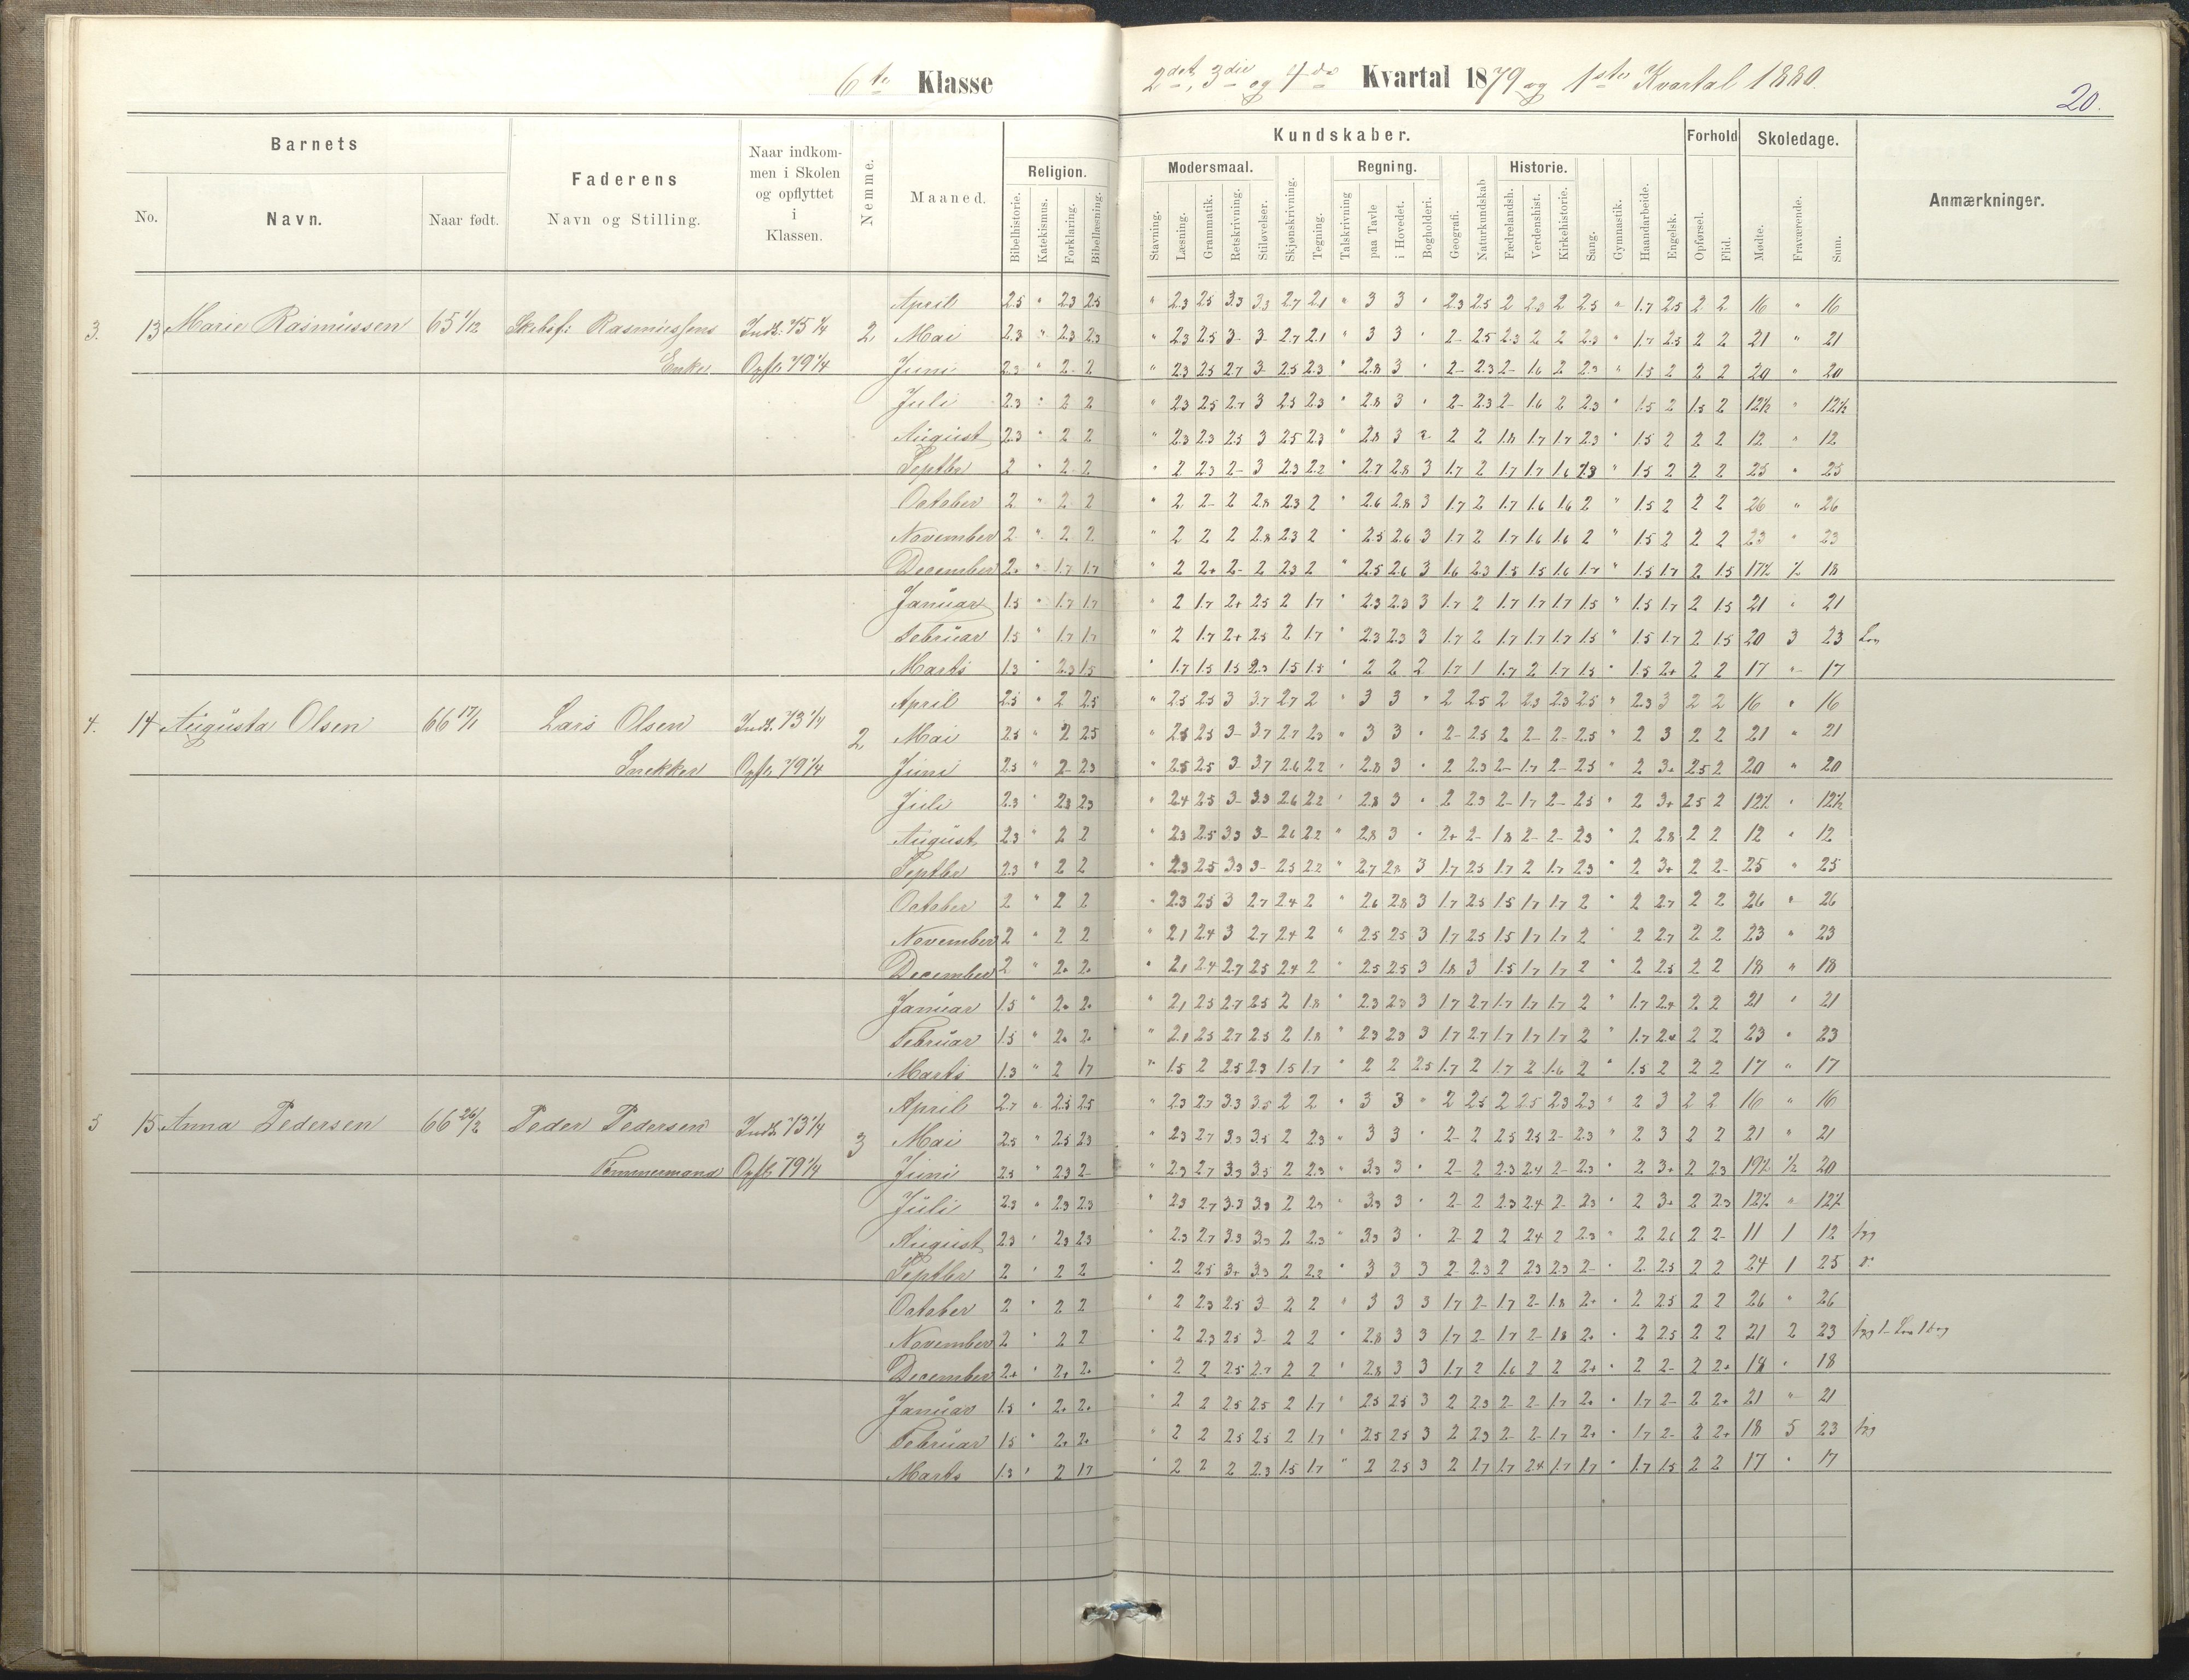 6te Klasse
2det, 3die og 4de Kvartal 1879 og 1ste Kvartal 1880.
20.
Barnets
No.
Navn.
Naar født.
Faderens
Navn og Stilling.
Naar indkom-
men i Skolen
og opflyttet
i
Klassen.
Nemme.
Maaned.
Kundskaber.
Religion.
Bibelhistorie.
Katekismus.
Forklaring.
Bibellæsning.
Modersmaal.
Stavning.
Læsning.
Grammatik.
Retskrivning.
Stiløvelser.
Skjønskrivning.
Tegning.
Regning.
Talskrivning
paa Tavle
i Hovedet.
Bogholderi.
Geografi.
Naturkundskab
Historie.
Fædrelandsh.
Verdenshist.
Kirkehistorie.
Sang.
Gymnastik.
Haandarbeide.
Engelsk.
Forhold
Opførsel.
Flid.
Skoledage.
Mødte.
Fraværende.
Sum.
Anmærkninger.
3. 13 Marie Rasmussen 65 1/12 Skibsf: Rasmussens Enke Inds. 75 1/4 Opfl. 79 1/4 2
April 2.5 " 2.3 2.5 " 2.3 2.5 3.3 3.3 2.7 2.1 " 3 3 " 2.3 2.5 2 2.3 2 2.5 " 1.7 2.5 2 2 16 " 16
Mai 2.3 " 2.3 2.3 " 2.3 2.5 3- 3- 2.7 2.1 " 3 3 " 2- 2.5 2.3 2 2 2.3 " 1.7 2.5 2 2 21 " 21
Juni 2.3 " 2- 2 " 2.3 2.5 2.7 3- 2.5 2.3 " 2.8 3 " 2- 2.3 2- 1.6 2 2.3 " 1.5 2 2 2 20 " 20
Juli 2.3 " 2 2 " 2.3 2.5 2.7 3 2.5 2.3 " 2.8 3 " 2- 2.3 2- 1.6 2 2.3 " 1.5 2 1.5 2 12½ " 12½
August 2.3 " 2 2 " 2.3 2.3 2.5 3 2.5 2.3 " 2.8 3 2 2 1.8 1.7 1.7 2.3 " 1.5 2 2 2 12 " 12
Septbr 2 " 2- 2 " 2 2.3 2- 3 2.3 2.2 " 2.7 2.8 3 1.7 2 1.7 1.7 1.6 " 1.5 2 2 2 25 " 25
October 2 " 2 2 " 2 2- 2 2.8 2.3 2 " 2.6 2.8 3 1.7 2 1.7 1.6 1.6 2 " 1.5 2 2 2 26 " 26
November 2 " 2 2 " 2 2 2 2.8 2.3 2 " 2.5 2.6 3 1.7 2 1.7 1.6 1.6 2 " 1.5 2 2 2 23 " 23
December 2+ " 1.7 1.7 " 2 2+ 2- 2 2.3 2 " 2.5 2.6 3 1.6 2.3 1.5 1.5 1.6 1.7 " 1.5 1.7 2 1.5 17½ ½ 18
Januar 1.5 " 1.7 1.7 " 2 1.7 2+ 2.5 2 1.7 " 2.3 2.3 3 1.7 2 1.7 1.7 1.7 1.5 " 1.5 1.7 2 1.5 21 " 21
Februar 1.5 " 1.7 1.7 " 2 1.7 2+ 2.5 2 1.7 " 2.3 2.3 3 1.7 2 1.7 1.7 1.7 1.5 " 1.5 1.7 2 1.5 20 3 23
Marts 1.3 " 2.3 1.5 " 1.7 1.5 1.5 2.3 1.5 1.5 " 2 2 2 1.7 1 1.7 2 1.7 1.5 " 1.5 2+ 2 2 17 " 17
4. 14 Augusta Olsen 66 17/1 Lars Olsen Snekker Inds. 73 1/4 Opfl. 79 1/4 2
April 2.5 " 2 2.5 " 2.5 2.5 3 3.7 2.7 2 " 3 3 " 2 2.5 2 2.3 2.3 2.5 " 2.3 3 2 2 16 " 16
Mai 2.5 " 2 2.5 " 2.5 2.5 3- 3.7 2.7 2.3 " 3 3 " 2- 2.5 2 2- 2- 2.5 " 2 3 2 2 21 " 21
Juni 2.5 " 2- 2.3 " 2.5 2.5 3- 3.7 2.6 2.2 " 2.8 3 " 2 2.3 2- 1.7 2- 2.5 " 2 3+ 2.5 2 20 " 20
Juli 2.3 " 2.3 2.3 " 2.4 2.5 3- 3.3 2.6 2.2 " 2.8 3 " 2 2.3 2- 1.7 2- 2.5 " 2 3+ 2.5 2 12½ " 12½
August 2.3 " 2 2 " 2.3 2.5 3.3 3- 2.6 2.2 " 2.8 3 " 2+ 2- 1.8 2- 2- 2.3 " 2 2.8 2 2 12 " 12
Septbr 2.3 " 2 2 " 2.3 2.5 3.3 3- 2.5 2.2 " 2.7 2.8 3 1.7 2.5 1.7 2 1.7 2.3 " 2 3+ 2 2- 25 " 25
October 2 " 2 2 " 2.3 2.5 3 2.7 2.4 2 " 2.6 2.8 3 1.7 2.5 1.5 1.7 1.7 2 " 2 2.7 2 2 26 " 26
November 2 " 2 2 " 2.1 2.4 3 2.7 2.4 2 " 2.5 2.5 3 1.7 2.5 1.5 1.7 1.7 2 " 2 2.7 2 2 23 " 23
December 2 " 2+ 2+ " 2.1 2.4 2.7 2.5 2.4 2 " 2.5 2.5 3 1.8 3 1.5 1.7 1.7 2 " 2 2.5 2 2 18 " 18
Januar 1.5 " 2+ 2+ " 2.1 2.5 2.7 2.5 2 1.8 " 2.3 2.3 3 1.7 2.7 1.7 1.7 1.7 2 " 1.7 2.4 2 2 21 " 21
Februar 1.5 " 2+ 2+ " 2.1 2.5 2.7 2.5 2 1.8 " 2.3 2.3 3 1.7 2.7 1.7 1.7 1.7 2 " 1.7 2.4 2 2 23 " 23
Marts 1.3 " 2 1.7 " 1.5 2 2.5 2.3 1.5 1.7 " 2 2 2.5 1.7 2 1.7 2 1.6 2 " 1.5 2 2 2 17 " 17
5 15 Anna Pedersen 66 26/2 Peder Pedersen Tømmermand Inds. 73 1/4 Opfl. 79 1/4 3
April 2.7 " 2.5 2.5 " 2.3 2.7 3.3 3.5 2 2 " 3 3 " 2 2.5 2 2.5 2.3 2.3 " 2 3 2 2 16 " 16
Mai 2.5 " 2.5 2.3 " 2.3 2.7 3.3 3.5 2 2.3 " 3 3 " 2- 2 2.5 2.5 2- 2.3 " 2 3 2 2 21 " 21
Juni 2.5 " 2.3 2- " 2.3 2.7 3.3 3.5 2 2.3 " 3.3 3 " 2- 2 2.3 2.4 2- 2.3 " 2 3+ 2 2.3 19½ ½ 20
Juli 2.3 " 2.3 2.3 " 2.3 2.7 3.3 3.3 2 2.3 " 3.3 3 " 2- 2 2.3 2.4 2- 2.3 " 2 3+ 2 2.3 12½ " 12½
August 2.3 " 2.3 2.3 " 2.3 2.7 3.3 3.3 2 2.3 " 3.3 3 " 2- 2 2 2.4 2 2.3 " 2 2.6 2 2- 11 1 12 syg
Septbr 2 " 2 2 " 2 2.5 3+ 3.3 2 2.2 " 3 3 3 2- 2.3 2 2.3 2.3 2- " 2 2.5 2 2 24 1 25
October 2 " 2 2 " 2 2.3 2.5 3- 2 2 " 3 3 3 1.7 2- 1.7 2- 1.8 2+ " 2 2.5 2 2 26 " 26
November 2 " 2 2 " 2 2.3 2.5 3- 2 2 " 2.8 3 3 1.7 2- 1.7 2- 1.8 2+ " 2 2.5 2 2 21 2 23
December 2+ " 2+ 2+ " 2 2 2.5 2.7 2 2 " 2.8 3 3 1.7 2 1.6 2 2 2+ " 2 2- 2 2+ 18 " 18
Januar 1.5 " 2+ 2+ " 2 2 2.5 2.5 2 1.7 " 2.5 2.5 3 2 2.3 2- 2- 1.7 2+ " 1.7 2- 2 2+ 21 " 21
Februar 1.5 " 2+ 2+ " 2 2 2.5 2.5 2 1.7 " 2.5 2.5 3 2 2.3 2- 2- 1.7 2+ " 1.7 2- 2 2+ 18 5 23 syg
Marts 1.3 " 2 1.7 " 2 2 2 2.3 1.5 1.7 " 2 2.5 3 2 1.7 1.7 2.4 1.7 1.7 " 1.7 1.5 2 2 17 " 17